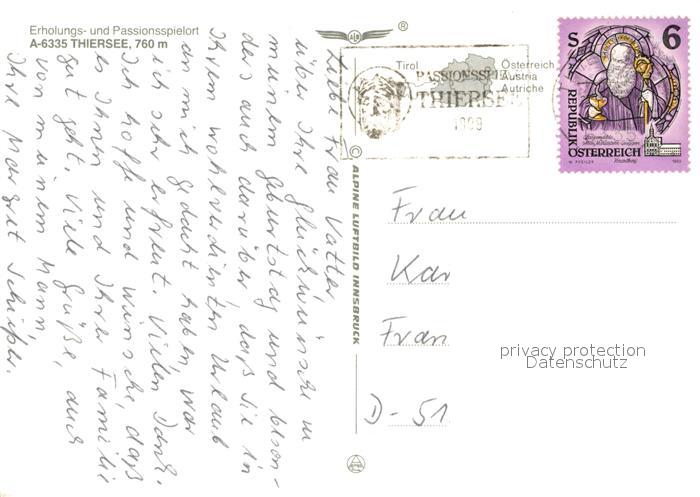 Erholungs- und Passionsspielort
A-6335 THIERSEE, 760 m
®
Liebe Frau Vatter,
über Ihre Glückwünsche zu
meinem Geburtstag und beson-
ders auch darüber, daß Sie in
Ihrem wohlverdienten Urlaub
an mich gedacht haben, war
ich sehr erfreut. Vielen Dank.
Ich hoffe und wünsche, daß
es Ihnen und Ihrer Familie
gut geht. Viele Grüße, auch
von meinem Mann,
Ihre Margret
© ALPINE LUFTBILD INNSBRUCK
Tirol
Österreich
Austria
Autriche
PASSIONSSPIELE
THIERSEE
1999
S 6
REPUBLIK
ÖSTERREICH
Frau
Kar
Fran
D-51
privacy protection
Datenschutz